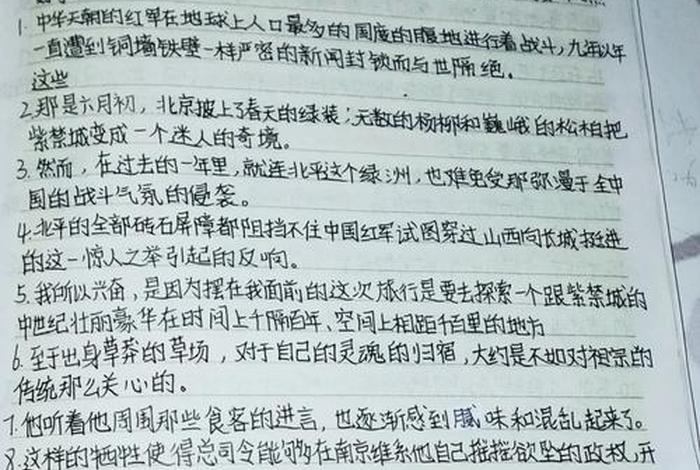 1. 中华天朝的红军在地球上人口最多的国度的腹地进行着战斗，九年以来
一直遭到铜墙铁壁一样严密的新闻封锁而与世隔绝。
这些
2.那是六月初，北京披上了春天的绿装；无数的杨柳和巍峨的松柏把
紫禁城变成一个迷人的奇境。
3. 然而，在过去的一年里，就连北平这个绿洲，也难免受那弥漫于全中
国的战斗气氛的侵袭。
4.北平的全部砖石屏障都阻挡不住中国红军试图穿过山西向长城挺进
的这一惊人之举引起的反响。
5. 我所以兴奋，是因为摆在我面前的这次旅行是要去探索一个跟紫禁城的
中世纪壮丽豪华在时间上千隔百年、空间上相距千百里的地方
6. 至于出身草莽的草场，对于自己的灵魂的归宿，大约是不如对祖宗的
传统那么关心的。
7. 他听着他周围那些食客的进言，也逐渐感到腻味和混乱起来了。
8.这样的牺牲使得总司令能够在南京维系他自己摇摇欲坠的政权，开